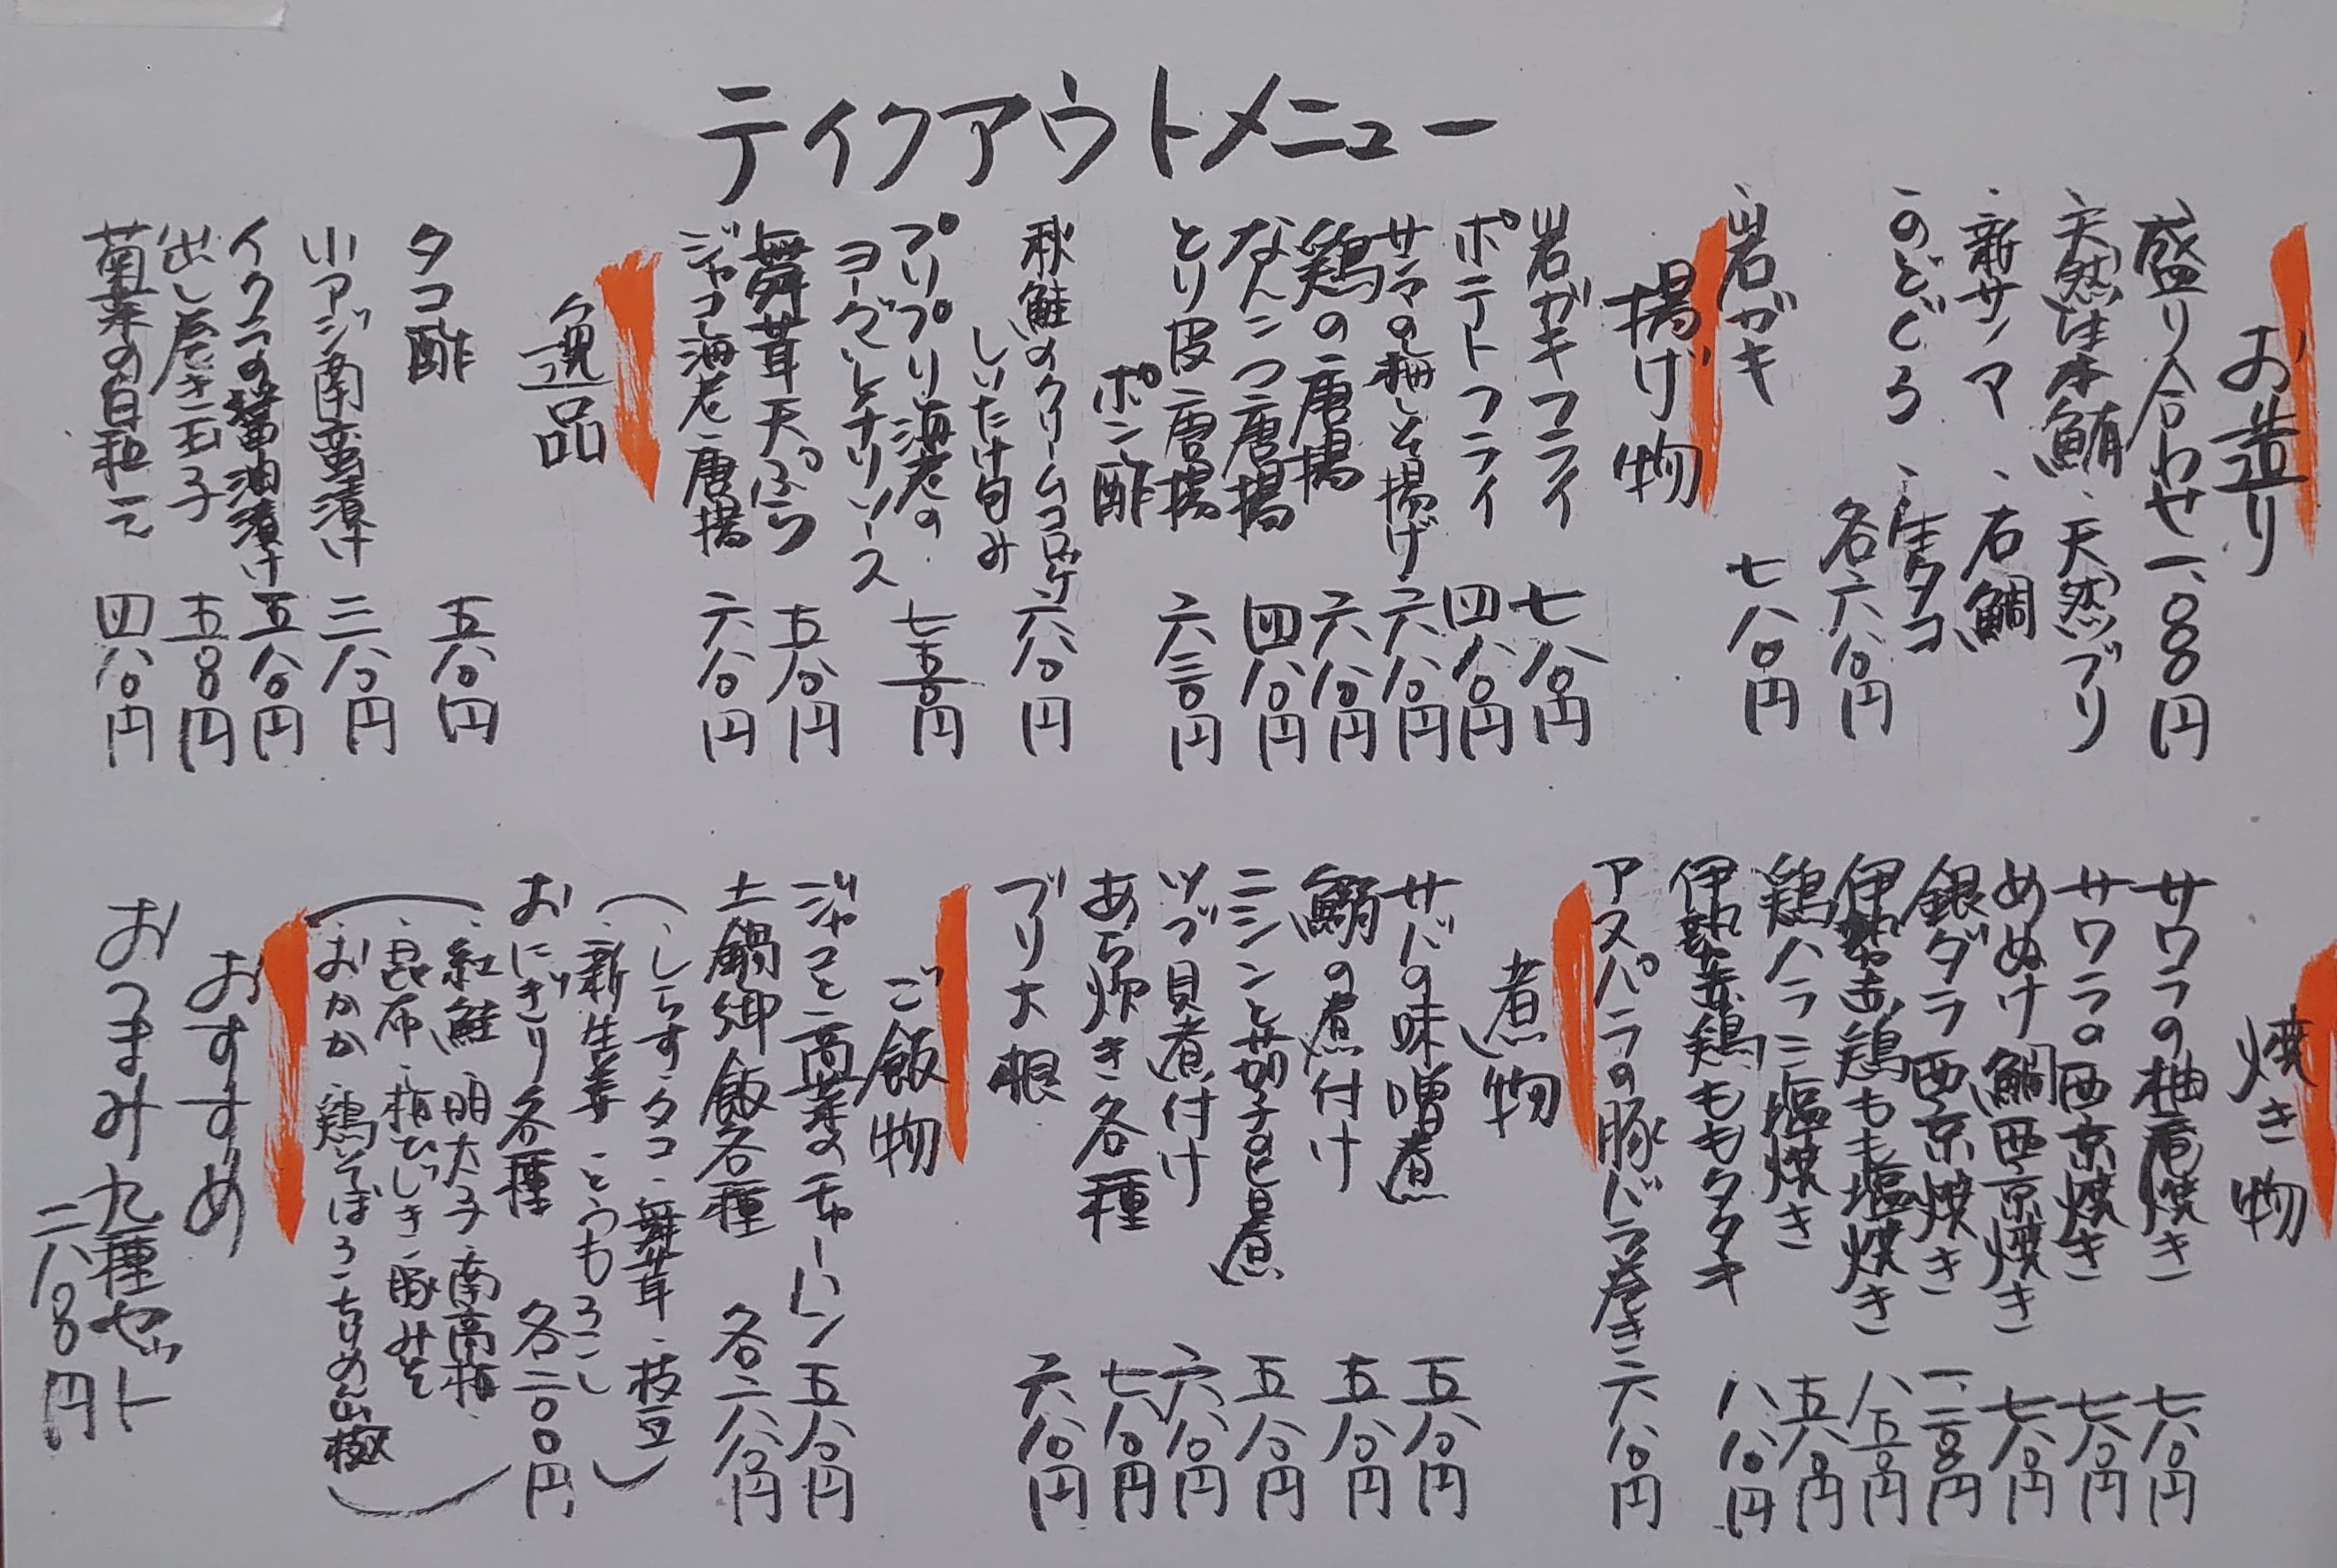 ティクアウトメニュー
お造り
盛り合わせ 一、〇八〇円
、天然生本鮪 、天然ブリ
、新サンマ 、石鯛
、のどぐろ 、生タコ
各六八〇円
、岩ガキ 七八〇円
揚げ物
岩ガキフライ 七八〇円
ポテトフライ 四八〇円
サンマの梅しそ揚げ 六八〇円
鶏の唐揚 六八〇円
なんこつ唐揚 四八〇円
とり皮唐揚 六三〇円
ポン酢
秋鮭のクリームコロッケ 六八〇円
しいたけ包み
プリプリ海老の 七五〇円
ヨーグルトチリソース
舞茸天ぷら 五八〇円
ジャコ海老唐揚 六八〇円
逸品
タコ酢 五八〇円
小アジ南蛮漬け 三八〇円
イクラの醤油漬け 五八〇円
出し巻き玉子 五八〇円
菊菜の白和え 四八〇円
焼き物
サワラの柚庵焼き 七八〇円
サワラの西京焼き 七八〇円
めぬけ鯛西京焼き 七八〇円
銀ダラ西京焼き 一、二八〇円
伊勢赤鶏もも塩焼き 八五〇円
鶏ハラミ塩焼き 五八〇円
伊勢赤鶏ももタタキ 八八〇円
アスパラの豚バラ巻き 六八〇円
煮物
サバの味噌煮 五八〇円
鰯の煮付け 五八〇円
ニシンと茄子の旨煮 五八〇円
ツブ貝煮付け 六八〇円
あら炊き各種 七八〇円
ブリ大根 六八〇円
ご飯物
ジャコと高菜のチャーハン 五八〇円
土鍋御飯各種 各二、八八〇円
(、しらす、タコ、舞茸、枝豆
、新生姜 とうもろこし)
おにぎり各種 各二〇〇円
(、紅鮭 、明太子、南高梅、
、昆布、梅ひじき、豚みそ
、おかか 、鶏そぼろ、ちりめん山椒)
おすすめ
おつまみ九種セット
二、八〇円